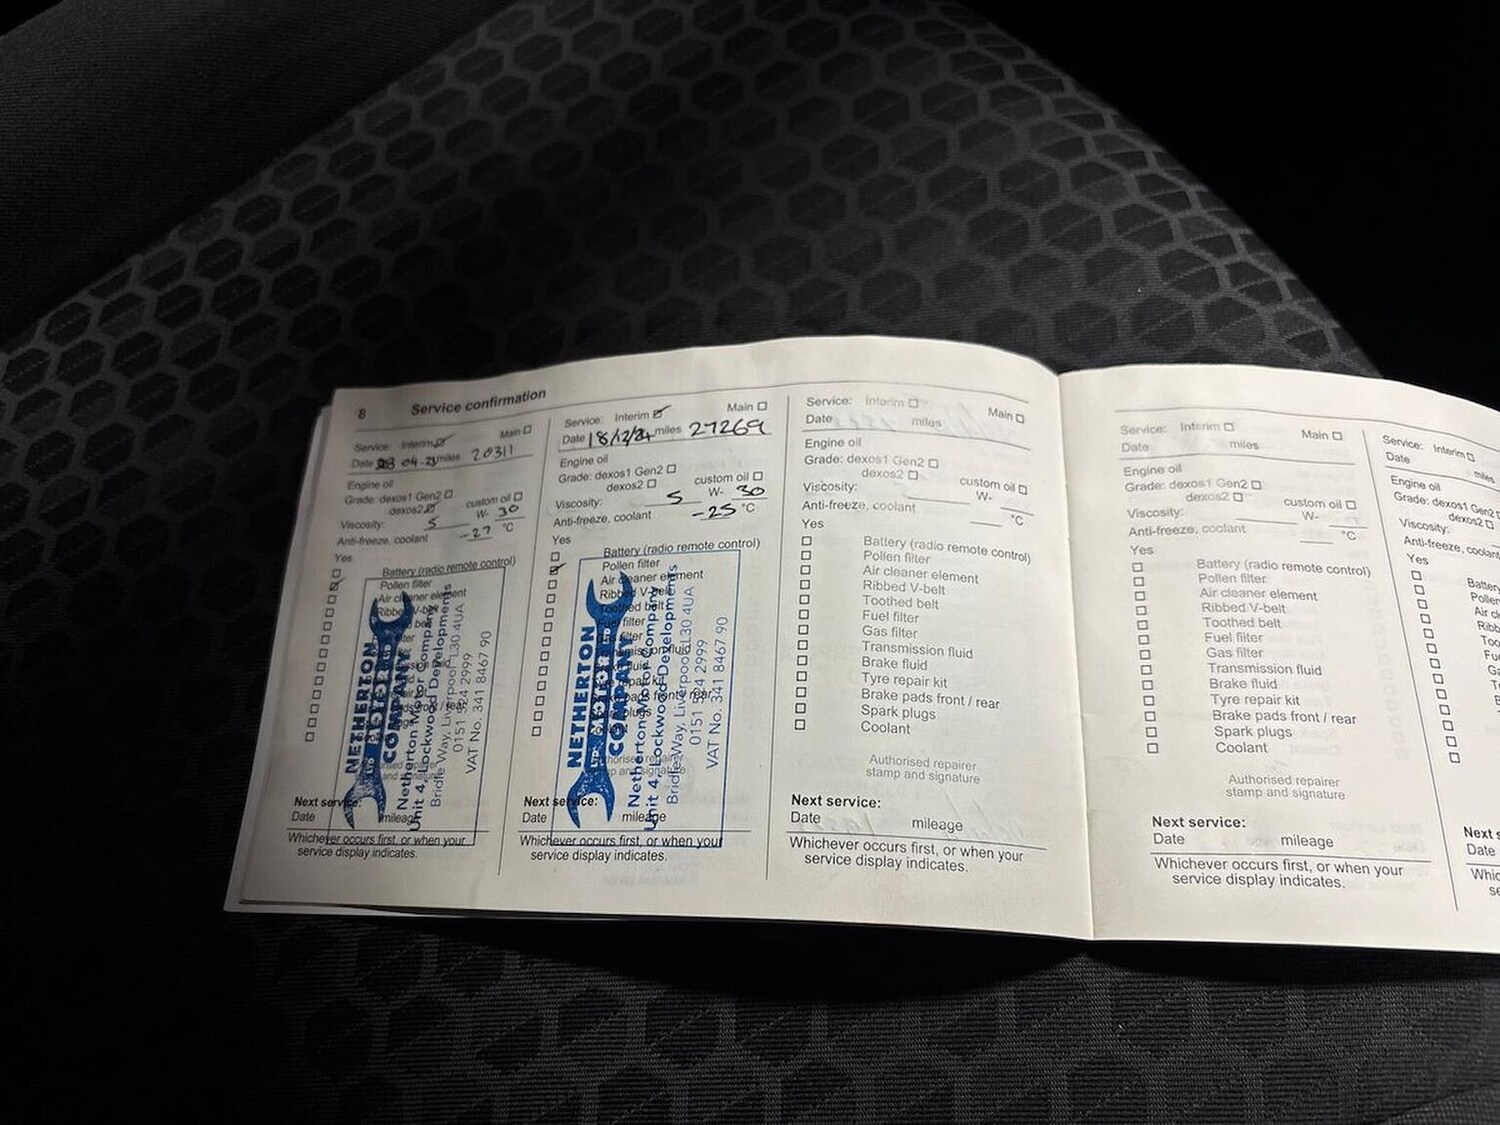 8 Service confirmation
Service: Interim Main
Date 04-23 miles 20311
Engine oil
Grade: dexos1 Gen2
dexos2 custom oil
Viscosity: 5 W- 30
Anti-freeze, coolant -27 °C
Yes
Battery (radio remote control)
Pollen filter
Air cleaner element
Ribbed V-belt
NETHERTON
MOTOR
COMPANY
LTD
Netherton Motor Company
Unit 4, Lockwood Developments
Bridle Way, Liverpool L30 4UA
0151 524 2999
VAT No. 341 8467 90
Next service:
Date mileage
Whichever occurs first, or when your
service display indicates.
Service: Interim Main
Date 18/12/24 miles 27269
Engine oil
Grade: dexos1 Gen2
dexos2 custom oil
Viscosity: 5 W- 30
Anti-freeze, coolant -25 °C
Yes
Battery (radio remote control)
Pollen filter
Air cleaner element
Ribbed V-belt
Toothed belt
Fuel filter
Gas filter
Transmission fluid
Brake fluid
Tyre repair kit
Brake pads front / rear
Spark plugs
Coolant
Authorised repairer
stamp and signature
NETHERTON
MOTOR
COMPANY
LTD
Netherton Motor Company
Unit 4, Lockwood Developments
Bridle Way, Liverpool L30 4UA
0151 524 2999
VAT No. 341 8467 90
Next service:
Date mileage
Whichever occurs first, or when your
service display indicates.
Service: Interim Main
Date miles
Engine oil
Grade: dexos1 Gen2
dexos2 custom oil
Viscosity: W-
Anti-freeze, coolant °C
Yes
Battery (radio remote control)
Pollen filter
Air cleaner element
Ribbed V-belt
Toothed belt
Fuel filter
Gas filter
Transmission fluid
Brake fluid
Tyre repair kit
Brake pads front / rear
Spark plugs
Coolant
Authorised repairer
stamp and signature
Next service:
Date mileage
Whichever occurs first, or when your
service display indicates.
Service: Interim Main
Date miles
Engine oil
Grade: dexos1 Gen2
dexos2 custom oil
Viscosity: W-
Anti-freeze, coolant °C
Yes
Battery (radio remote control)
Pollen filter
Air cleaner element
Ribbed V-belt
Toothed belt
Fuel filter
Gas filter
Transmission fluid
Brake fluid
Tyre repair kit
Brake pads front / rear
Spark plugs
Coolant
Authorised repairer
stamp and signature
Next service:
Date mileage
Whichever occurs first, or when your
service display indicates.
Service: Interim
Date miles
Engine oil
Grade: dexos1 Gen2
dexos2
Viscosity:
Anti-freeze, coolant
Yes
Next s
Date